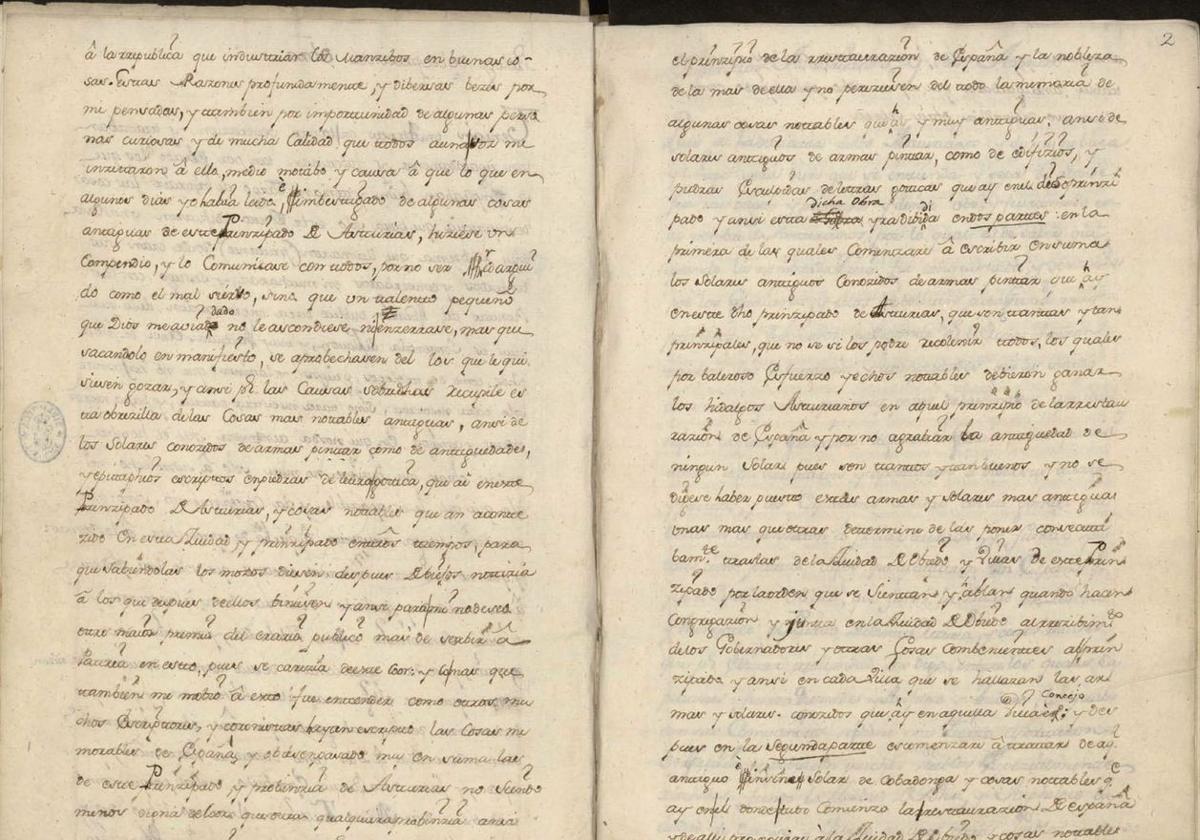 â la rrepublica que industrian los Manzebos en buenas co-
sas. Estas Razones profundamente, y dibersas bezes por
mi pensadas, y tambien por importunidad de algunas perso
nas curiosas y de mucha Calidad que todos aun por me
inzitaron â ello, me dio motibo y causa â que lo que en
algunos dias yo habia leido, è imbestigado de algunas cosas
antiguas de este Prinzipado de Asturias, hiziese un
Compendio, y lo Comunicase con todos, por no ser redargui
do como el mal sierbo, sino que un talento pequeño
que Dios me avia dado no le ascondiese, ni enzerrase, mas que
sacandolo en manifiesto, se aprobechasen del los que le qui
siesen gozar, y ansi por las Causas sobredhas recopile es
ta obrezilla de las Cosas mas notables antiguas, ansi de
los Solares conozidos de armas pintar como de antiguedades,
y epitaphios escriptos en piedras de letra gotica, que ai en este
Prinzipado de Asturias, y cosas notables que an aconte
zido en esta Ziudad y prinzipado en otros tiempos, para
que sabiendolas los mozos diesen despues de biejos notizia
â los que despues dellos biniesen y ansi para mi no deseo
otro maior premio del erario publico mas de serbir â la
Patria en esto, pues se carezia de este loor: y lo mas que
tambien me mobio â esto fue entender como otros mu
chos Escriptores, y coronistas hayan escripto las Cosas me
morables de España, y obiesen pasado muy en suma las
de este Prinzipado y probinzia de Asturias no siendo
menos digna de loor que otra qualquiera probinzia ansi
2
el prinzipio de la rrestaurazion de España y la nobleza
de la mas de ella y no pereziesen del todo la memoria de
algunas cosas notables que ay y muy antiguas, ansi de
solares antiguos de armas pintar, como de edifizios, y
piedras Esculpidas de letras goticas que ay en el dcho prinzi
pado y ansi esta dicha Obra yra dibidida en dos partes: en la
primera de las quales Comenzare â escribir en suma
los Solares antiguos Conozidos de armas pintar, que ay
en este dho prinzipado de Asturias, que son tantas y tan
prinzipales, que no se si los podre recolenir todos, los quales
por baleroso Esfuerzo y echos notables debieron ganar
los hidalgos Asturianos en aquel prinzipio de la rrestau
razion de España y por no agrabiar la antiguedad de
ningun Solar pues son tantos y tan buenos y no se
digese haber puesto estas armas y solares mas antigua
onas mas que otras determino de las poner consecuti
bam.te tras las de la Ziudad de Obiedo y Villas de este Prin
zipado por la orden que se Sientan y ablan quando hazen
Congregazion y junta en la Ziudad de Obiedo al rrezibim.to
de los Gobernadores y otras Cosas combenientes al prin
zipado y ansi en cada Villa que se hallaran las ar
mas y solares conozidos que ay en aquella Villa è Concejo: y des
pues en la Segunda parte comenzare â tratar de aq.l
antiguo è insigne Solar de Cobadonga y cosas notables q.e
ay en el donde tubo Comienzo la restaurazion de España